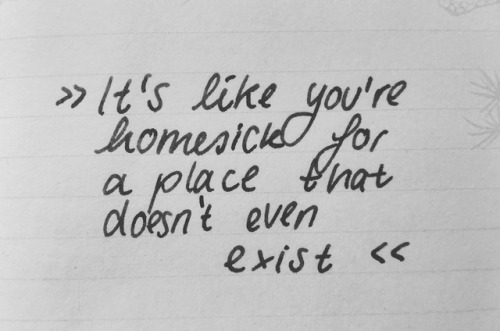 »It's like you're
homesick for
a place that
doesn't even
exist «